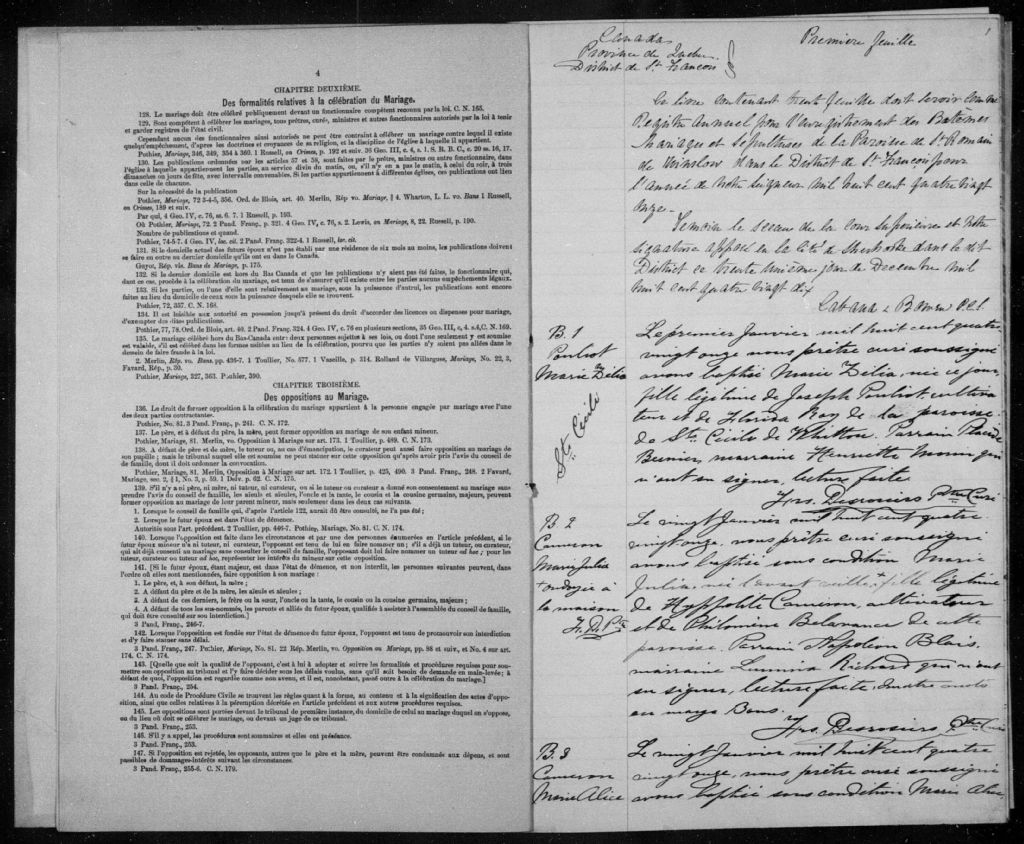 4
CHAPITRE DEUXIÈME.
Des formalités relatives à la célébration du Mariage.
128. Le mariage doit être célébré publiquement devant un fonctionnaire compétent reconnu par la loi. C. N. 165.
129. Sont compétents à célébrer les mariages, tous prêtres, curés, ministres et autres fonctionnaires autorisés par la loi à tenir
et garder registres de l'état civil.
Cependant aucun des fonctionnaires ainsi autorisés ne peut être contraint à célébrer un mariage contre lequel il existe
quelqu'empêchement, d'après les doctrines et croyances de sa religion, et la discipline de l'église à laquelle il appartient.
Pothier, Mariage, 346, 349, 354 à 360. 1 Russell, on Crimes, p. 192 et suiv. 36 Geo. III, c. 4, s. 1. S. R. B. C., c. 20 ss. 16, 17.
130. Les publications ordonnées par les articles 57 et 58, sont faites par le prêtre, ministre ou autre fonctionnaire, dans
l'église à laquelle appartiennent les parties, au service divin du matin, ou, s'il n'y en a pas le matin, à celui du soir, à trois
dimanches ou jours de fête, avec intervalle convenables. Si les parties appartiennent à différentes églises, ces publications ont lieu
dans celle de chacune.
Sur la nécessité de la publication
Pothier, Mariage, 72 3-4-5, 356. Ord. de Blois, art. 40. Merlin, Rép vo. Mariage, § 4. Wharton, L. L. vo. Bans 1 Russell,
on Crimes, 189 et suiv.
Par qui, 4 Geo. IV, c. 76, ss. 6. 7. 1 Russell, p. 193.
Où Pothier, Mariage, 72. 2 Pand. Franç. p. 321. 4 Geo. IV, c. 76, s. 2. Lewis, on Mariage, 8, 22. Russell, p. 190.
Nombre de publications et quand.
Pothier, 74-5-7. 4 Geo. IV, loc. cit. 2 Pand. Franç. 322-4. 1 Russell, loc. cit.
131. Si le domicile actuel des futurs époux n'est pas établi par une résidence de six mois au moins, les publications doivent
se faire en outre au dernier domicile qu'ils ont eu dans le Canada.
Guyot, Rép. vis. Bans de Mariage, p. 175.
132. Si leur dernier domicile est hors du Bas Canada et que les publications n'y aient pas été faites, le fonctionnaire qui,
dans ce cas, procède à la célébration du mariage, est tenu de s'assurer qu'il n'existe entre les parties aucuns empêchements légaux.
133. Si les parties, ou l'une d'elles sont relativement au mariage, sous la puissance d'autrui, les publications sont encore
faites au lieu du domicile de ceux sous la puissance desquels elle se trouvent.
Pothier, 72, 357. C. N. 168.
134. Il est loisible aux autorité en possession jusqu'à présent du droit d'accorder des licences ou dispenses pour mariage,
d'exempter des dites publications.
Pothier, 77, 78. Ord. de Blois, art. 40. 2 Pand. Franç. 324. 4 Geo. IV, c. 76 en plusieurs sections, 35 Geo. III, c, 4. s.4, C. N. 169.
135. Le mariage célébré hors du Bas-Canada entre deux personnes sujettes à ses lois, ou dont l'une seulement y est soumise
est valable, s'il est célébré dans les formes usitées au lieu de la célébration, pourvu que les parties n'y soient pas allées dans le
dessein de faire fraude à la loi.
2. Merlin, Rép. vo. Bans. pp. 436-7. 1 Toullier, No. 577. 1 Vazeille, p. 314. Rolland de Villargues, Mariage, No. 22, 3,
Favard, Rép., p. 30.
Pothier, Mariage, 327, 363. Pothier, 390.
CHAPITRE TROISIÈME.
Des oppositions au Mariage.
136. Le droit de former opposition à la célébration du mariage appartient à la personne engagée par mariage avec l'une
des deux parties contractantes.
Pothier, No. 81. 3 Pand. Franç. p. 241. C. N. 172.
137. Le père, et à défaut du père, la mère, peut former opposition au mariage de son enfant mineur.
Pothier, Mariage, 81. Merlin, vo. Opposition à Mariage sur art. 173. 1 Toullier, p. 489. C. N. 173.
138. A défaut de père et de mère, le tuteur ou, au cas d'émancipation, le curateur peut aussi faire opposition au mariage de
son pupille; mais le tribunal auquel elle est soumise ne peut statuer sur cette opposition qu'après avoir pris l'avis du conseil de
de famille, dont il doit ordonner la convocation.
Pothier, Mariage, 81. Merlin, Opposition à Mariage sur art. 172. 1 Toullier, p. 425, 490. 3 Pand. Franç., 248. 2 Favard,
Mariage, sec. 2, § 1, No. 3, p. 59. 1 Delv. p. 62. C. N. 175.
139. S'il n'y a ni père, ni mère, ni tuteur, ni curateur, ou si le tuteur ou curateur a donné son consentement au mariage sans
prendre l'avis du conseil de famille, les aïeuls et aïeules, l'oncle et la tante, le cousin et la cousine germains, majeurs, peuvent
former opposition au mariage de leur parent mineur, mais seulement dans les deux cas suivants.
1. Lorsque le conseil de famille qui, d'après l'article 122, aurait dû être consulté, ne l'a pas été;
2. Lorsque le futur époux est dans l'état de démence.
Autorités sous l'art. précédent. 2 Toullier, pp. 446-7. Pothier, Mariage, No. 81. C. N. 174.
140. Lorsque l'opposition est faite dans les circonstances et par une des personnes énumérées en l'article précédent, si le
futur époux mineur n'a ni tuteur, ni curateur, l'opposant est tenu de lui en faire nommer un; s'il a déjà un tuteur, ou curateur,
qui ait déjà consenti au mariage sans consulter le conseil de famille, l'opposant doit lui faire nommer un tuteur ad hoc; pour les
tuteur, curateur ou tuteur ad hoc, représenter les intérêts du mineur sur cette opposition.
141. [Si le futur époux, étant majeur, est dans l'état de démence, et non interdit, les personnes suivantes peuvent, dans
l'ordre où elles sont mentionnées, faire opposition à son mariage:
1. Le père, et, à son défaut, la mère;
2. A défaut du père et de la mère, les aïeuls et aïeules;
3. A défaut de ces derniers, le frère ou la sœur, l'oncle ou la tante, le cousin ou la cousine germains, majeurs;
4. A défaut de tous les sus-nommés, les parents et alliés du futur époux, qualifiés à assister à l'assemblée du conseil de famille,
qui doit être consulté sur son interdiction.]
3 Pand. Franç., 246-7.
142. Lorsque l'opposition est fondée sur l'état de démence du futur époux, l'opposant est tenu de promouvoir son interdiction
et d'y faire statuer sans délai.
3 Pand. Franç., 247. Pothier, Mariage, No. 81. 22 Rép. Merlin, vo. Opposition au Mariage, pp. 88 et suiv., et No. 4 sur art.
174. C. N. 174.
143. [Quelle que soit la qualité de l'opposant, c'est à lui à adopter et suivre les formalités et procédures requises pour soumettre
son opposition au tribunal et l'y faire décider sous les délais voulus, sans qu'il soit besoin de demande en main-levée; à
défaut de quoi, l'opposition est regardée comme non avenu, et il est, nonobstant, passé outre à la célébration du mariage.]
3 Pand. Franç., 254.
144. Au code de Procédure Civile se trouvent les règles quant à la forme, au contenu et à la signification des actes d'opposition,
ainsi que celles relatives à la péremption décrétée en l'article précédent et aux autres procédures requises.
145. Les oppositions sont portées devant le tribunal de première instance, du domicile de celui au mariage duquel on s'oppose,
ou du lieu où doit se célébrer le mariage, ou devant un juge de ce tribunal.
3 Pand. Franç., 253.
146. S'il y a appel, les procédures sont sommaires et elles ont préséance.
3 Pand. Franç., 253.
147. Si l'opposition est rejetée, les opposants, autres que le père et la mère, peuvent être condamnés aux dépens, et sont
passibles de dommages-intérêts suivant les circonstances.
3 Pand. Franç., 255-6. C. N. 179.
Canada
Province de Quebec
District de St. Francois
Premiere feuille
1
Ce livre contenant trente feuilles doit servir comme
Registre Annuel pour l'enregistrement des Batêmes
Mariages et Sépultures de la Paroisse de St. Romain
de Winslow dans le District de St Francois pour
l'année de notre Seigneur mil huit cent quatre vingt
onze.
Temoin le sceau de la Cour Superieure et notre
signature apposé en la Cité de Sherbrooke dans le dit
District ce trente unieme jour de Decembre mil
huit cent quatre vingt dix
Cabana & Bowen P.C.S.
B. 1
Pouliot
Marie Zélia
Ste Cécile
Le premier Janvier mil huit cent quatre
vingt onze nous prêtre curé soussigné
avons baptisé Marie Zelia, née ce jour,
fille légitime de Joseph Pouliot cultiva
teur et de Florida Roy de la paroisse
de Ste. Cécile de Whitton. Parrain Placide
Bernier, marraine Henriette Morin qui
n'ont su signer, lecture faite
Frs. Desrosiers Ptre Curé
B 2
Cameron
Marie Julia
+ ondoyée à
la maison
F. D. Ptre
Le vingt Janvier mil huit cent quatre
vingt onze, nous prêtre curé soussigné
avons baptisé sous condition Marie
Julia, née l'avant veille, + fille légitime
de Hyppolite Cameron, cultivateur
et de Philomène Belavance de cette
paroisse. Parrain Napoleon Blais,
marraine Lumina Richard qui n'ont
su signer, lecture faite, quatre mots
en marge Bons.
Frs. Desrosiers Ptre Curé
B. 3
Cameron
Marie Alice
Le vingt Janvier mil huit cent quatre
vingt onze, nous prêtre curé soussigné
avons baptisé sous condition Marie Alice,